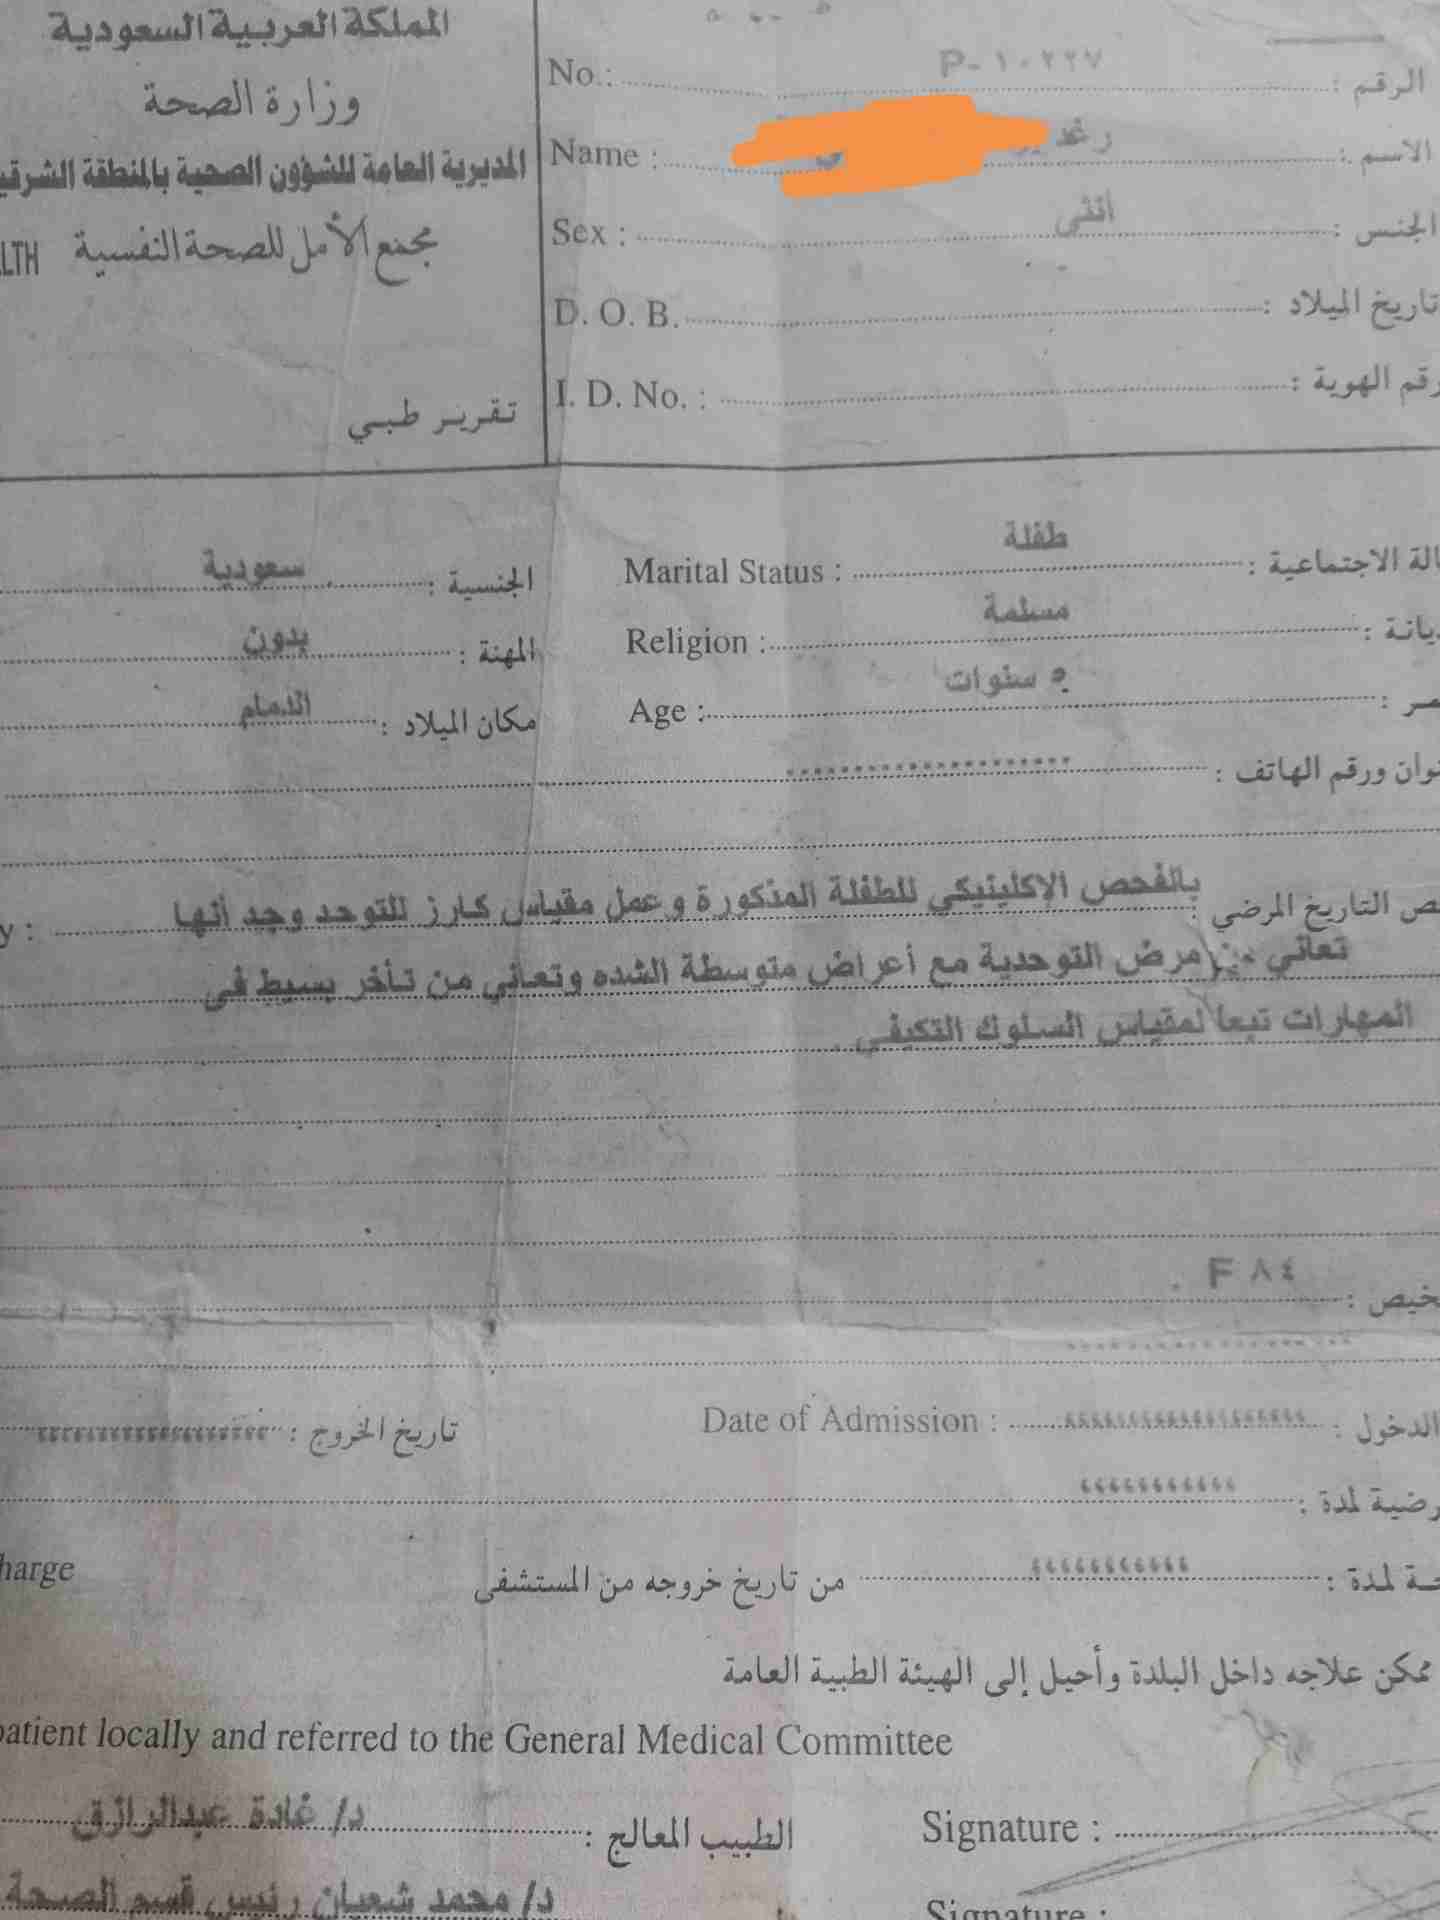 المملكة العربية السعودية
وزارة الصحة
المديرية العامة للشؤون الصحية بالمنطقة الشرقي
مجمع الأمل للصحة النفسية LTH
تقرير طبي
الرقم : P-١٠٢٢٧ No.:
الاسم : رغد Name :
الجنس : انثى Sex :
تاريخ الميلاد : D. O. B.
رقم الهوية : I. D. No. :
الة الاجتماعية : طفلة Marital Status : الجنسية : سعودية
يانة : مسلمة Religion : المهنة : بدون
مر : ٥ سنوات Age : مكان الميلاد : الدمام
نوان ورقم الهاتف :
ص التاريخ المرضي : بالفحص الإكلينيكي للطفلة المذكورة وعمل مقياس كارز للتوحد وجد أنها y :
تعاني من مرض التوحدية مع أعراض متوسطة الشده وتعاني من تأخر بسيط في
المهارات تبعا لمقياس السلوك التكيفي .
خيص : F ٨٤ .
الدخول : Date of Admission : تاريخ الخروج :
رضية لمدة :
ـة لمدة : من تاريخ خروجه من المستشفى harge
ممكن علاجه داخل البلدة وأحيل إلى الهيئة الطبية العامة
patient locally and referred to the General Medical Committee
Signature : الطبيب المعالج : د/ غادة عبدالرازق
Signature : د/ محمد شعبان رئيس قسم الصحة